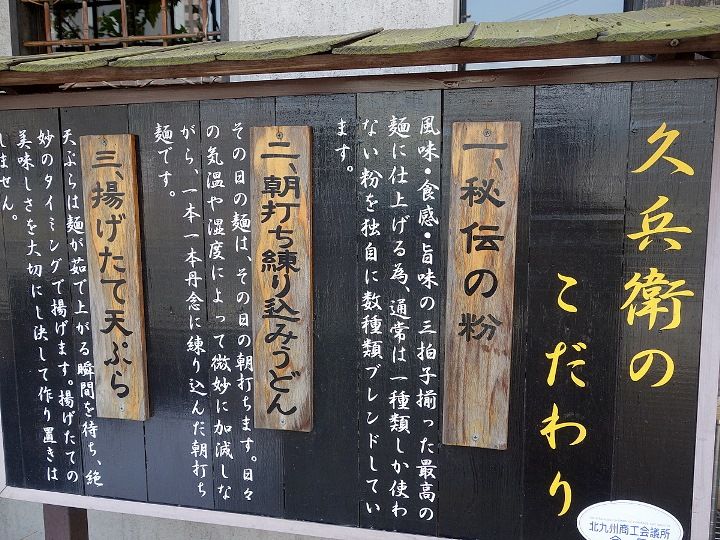 久兵衛の
こだわり
一、秘伝の粉
風味・食感・旨味の三拍子揃った最高の
麺に仕上げる為、通常は一種類しか使わ
ない粉を独自に数種類ブレンドしてい
ます。
二、朝打ち練り込みうどん
その日の麺は、その日の朝打ちます。日々
の気温や湿度によって微妙に加減しな
がら、一本一本丹念に練り込んだ朝打ち
麺です。
三、揚げたて天ぷら
天ぷらは麺が茹で上がる瞬間を待ち、絶
妙のタイミングで揚げます。揚げたての
美味しさを大切にし決して作り置きは
しません。
北九州商工会議所